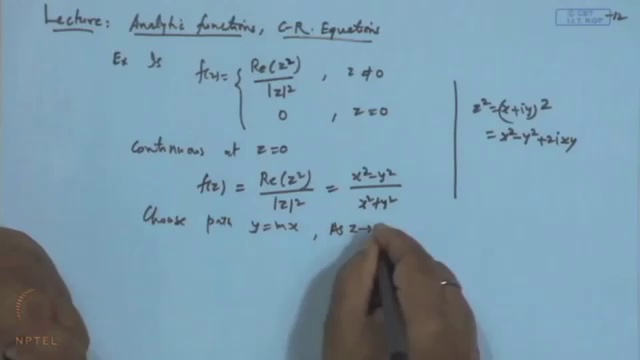 Lecture: Analytic functions, C-R. Equations
Ex Is f(z) = { Re(z²)/|z|² , z ≠ 0
0 , z = 0
Continuous at z=0
f(z) = Re(z²)/|z|² = x²-y²/x²+y²
Choose path y=mx, As z→
z² = (x+iy)2
= x²-y²+2ixy
I.I.T. KGP
-12
NPTEL